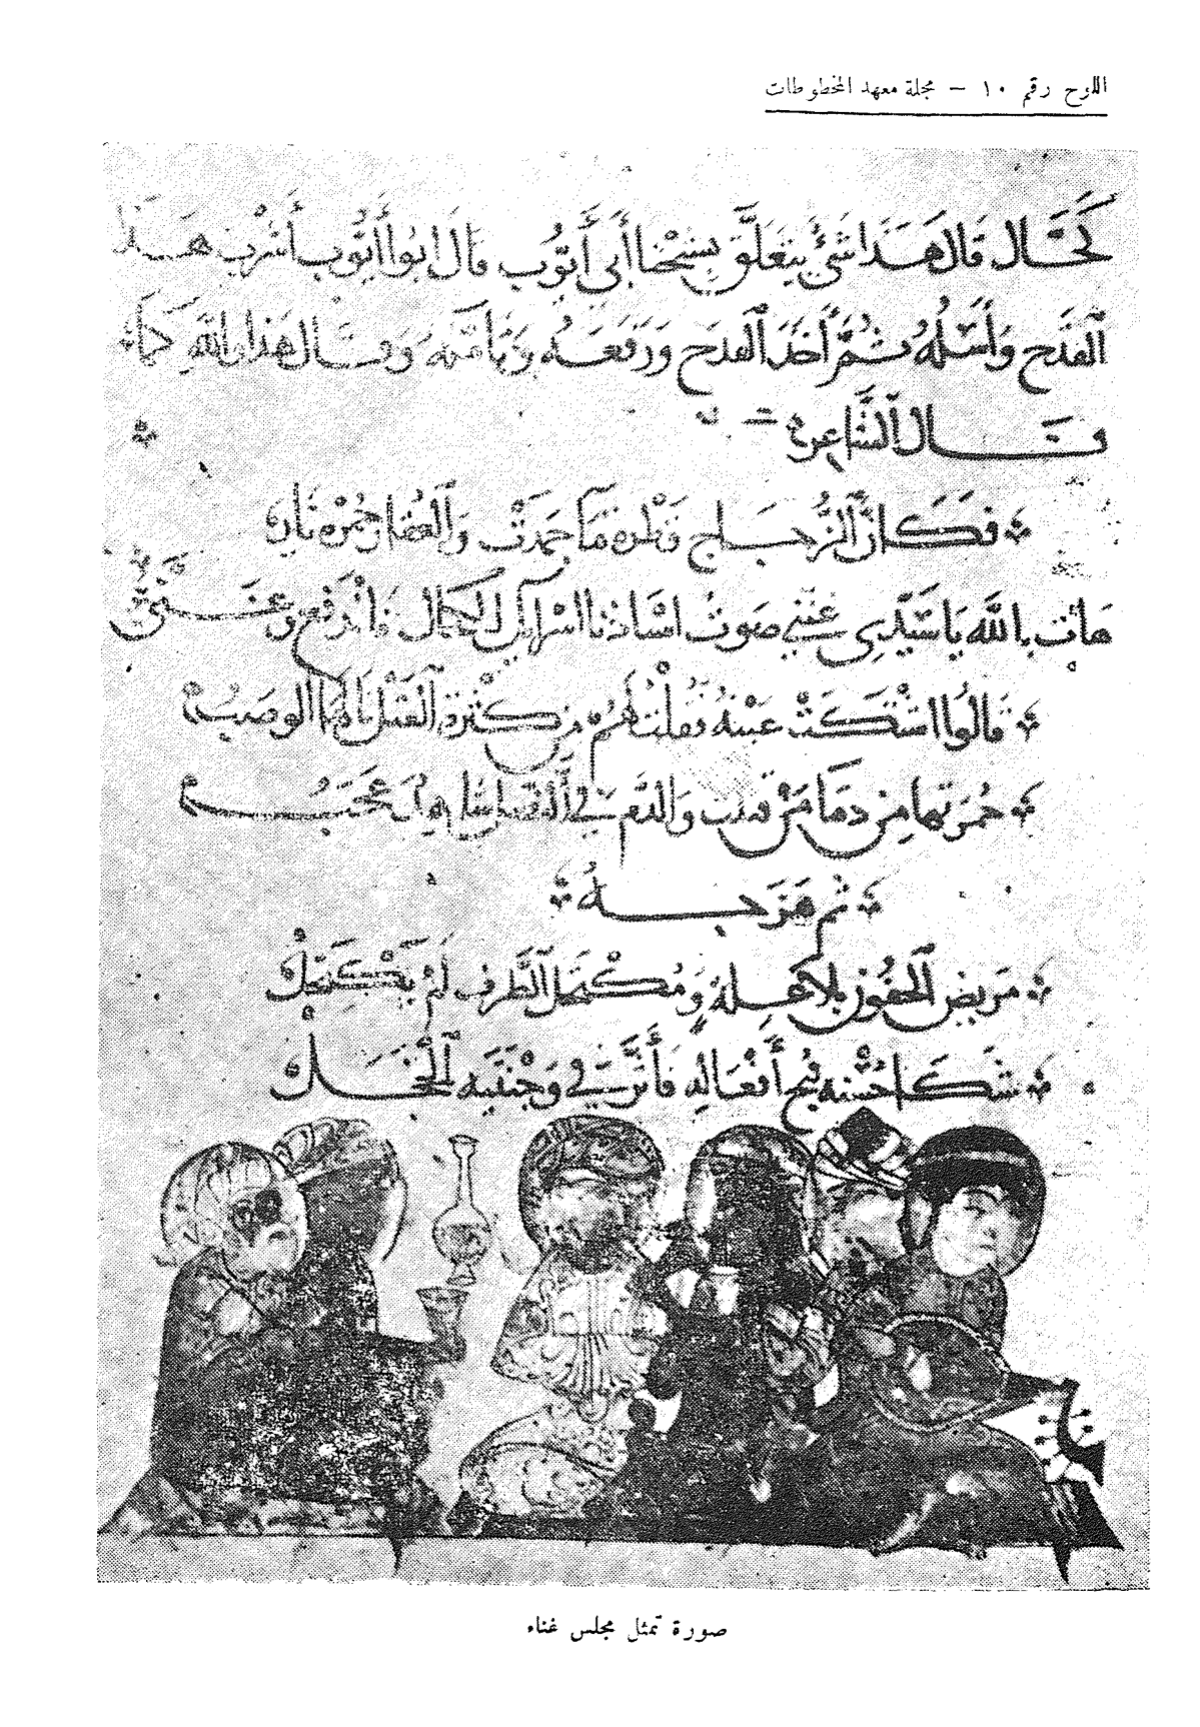 اللوح رقم ١٠ – مجلة معهد المخطوطات
كَحَّال قَال هَذَا شَيْءٌ يَتَعَلَّق بِشَيْخِنَا أَبِي أَيُّوب قَالَ ابُوا أَيُّوب أَشْرب هَذَا
القَدَح وَأَسْلُهُ ثُمَّ أَخَذَ القدَح وَرَفَعَهُ وَقال هَذا والله كَمَا
قَال الشَّاعر
فَكَأنَّ الزُّجَاج قَطْرة مَا جَمَدَتْ وَالعُقَار جَمْرَة نار
هَات بالله يَا سَيِّدِي غَنّني صَوتُ استاذنا اسرايل الكحال فاندفع وغنى
قَالُوا اشتَكَتْ عَيْنهُ فقُلْتُ لَهُمْ من كَثْرة القَتْل نَالهَا الوَصَبُ
حُمْرَتها مِن دِمَا مَنْ قتلت وَالدَّم في النصل شاهد عَجَبُ
ثم هَزَجهُ
مَريض الجفُون بلا عِلة وَمُكْتَحل الطَّرف لَمْ يَكْتَحِل
شَكَا حُسْنه قُبح أفْعَاله فَأَثَّرَ في وَجْنَتَيه الخَجَل
صورة تمثل مجلس غناء